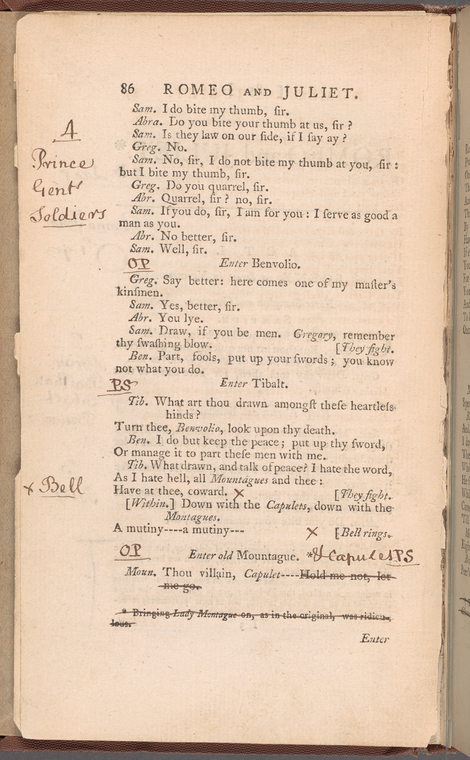 86 ROMEO AND JULIET.
Sam. I do bite my thumb, sir.
Abra. Do you bite your thumb at us, sir ?
Sam. Is they law on our side, if I say ay ?
Greg. No.
Sam. No, sir, I do not bite my thumb at you, sir :
but I bite my thumb, sir.
Greg. Do you quarrel, sir.
Abr. Quarrel, sir ? no, sir.
Sam. If you do, sir, I am for you : I serve as good a
man as you.
Abr. No better, sir.
Sam. Well, sir.
A
Prince
Gent
Soldiers
OP Enter Benvolio.
Greg. Say better: here comes one of my master's
kinsmen.
Sam. Yes, better, sir.
Abr. You lye.
Sam. Draw, if you be men. Gregory, remember
thy swashing blow. [They fight.
Ben. Part, fools, put up your swords ; you know
not what you do.
PS Enter Tibalt.
Tib. What art thou drawn amongst these heartless
hinds ?
Turn thee, Benvolio, look upon thy death.
Ben. I do but keep the peace ; put up thy sword,
Or manage it to part these men with me.
Tib. What drawn, and talk of peace? I hate the word,
As I hate hell, all Mountagues and thee :
x Bell
Have at thee, coward. x [They fight.
[Within.] Down with the Capulets, down with the
Montagues.
A mutiny----a mutiny--- x [Bell rings.
OP Enter old Mountague. *& Capulet PS
Moun. Thou villain, Capulet----Hold me not, let
me go.
* Bringing Lady Montague on, as in the original, was ridicu-
lous.
Enter